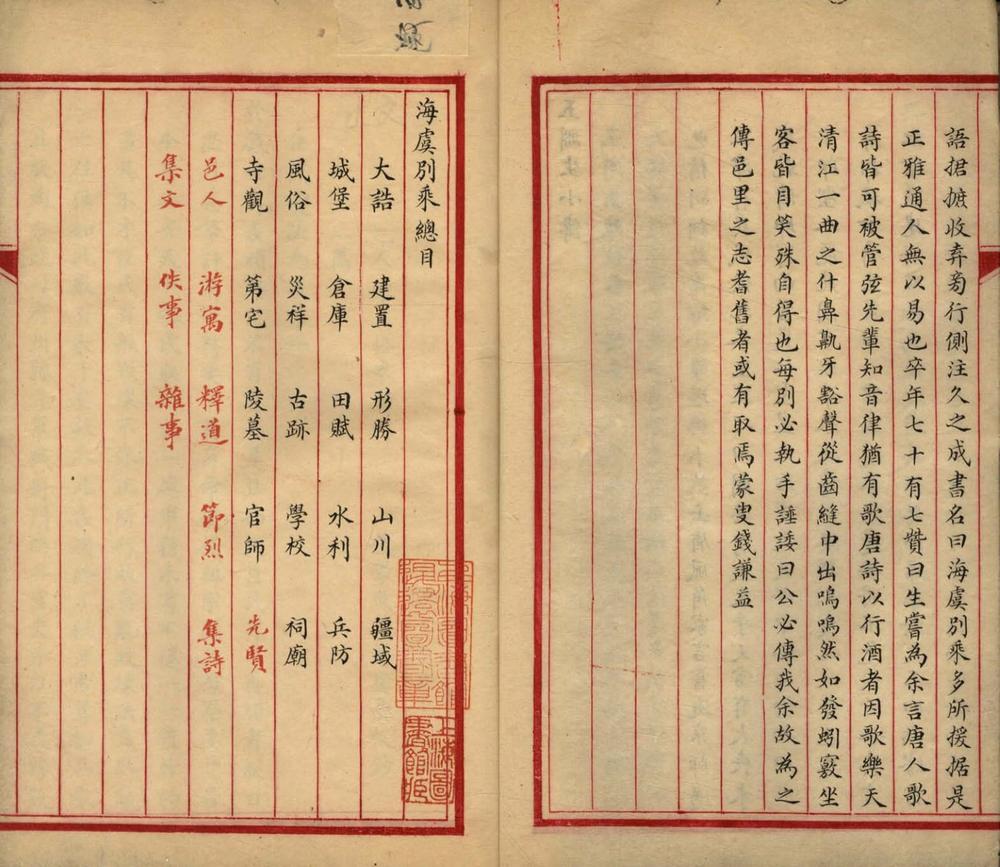 語捃摭收弃旁行側注久之成書名曰海虞別乘多所援据是
正雅通人無以易也卒年七十有七贊曰生嘗為余言唐人歌
詩皆可被管弦先輩知音律猶有歌唐詩以行酒者因歌樂天
清江一曲之什鼻鼽牙豁聲從齒縫中出嗚嗚然如發蚓竅坐
客皆目笑殊自得也每別必執手諈諉曰公必傳我余故為之
傳邑里之志耆舊者或有取焉蒙叟錢謙益
海虞別乘總目
大誥 建置 形勝 山川 疆域
城堡 倉庫 田賦 水利 兵防
風俗 災祥 古跡 學校 祠廟
寺觀 第宅 陵墓 官師 先賢
邑人 游寓 釋道 節烈 集詩
集文 佚事 雜事
上海圖書館藏